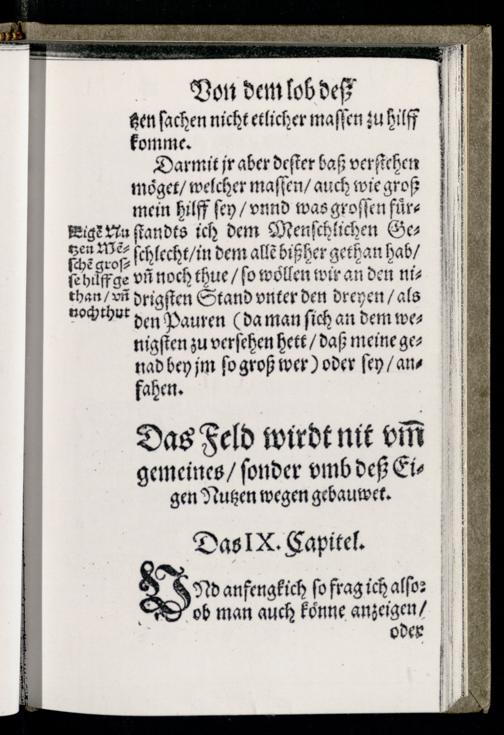 Von dem lob deß
tzen sachen nicht etlicher massen zu hilff
komme.
Darmit jr aber dester baß verstehen
möget / welcher massen / auch wie groß
mein hilff sey / vnnd was grossen für⸗
standts ich dem Menschlichen Ge⸗
schlecht / in dem allē bißher gethan hab /
vñ noch thue / so wöllen wir an den ni⸗
drigsten Stand vnter den dreyen / als
den Pauren (da man sich an dem we⸗
nigsten zu versehen hett / daß meine ge⸗
nad bey jm so groß wer) oder sey / an⸗
fahen.
Eigē Nu
tzen Mē⸗
schē gros⸗
se hilff ge
than / vñ
noch thut
Das Feld wirdt nit vm̄
gemeines / sonder vmb deß Ei⸗
gen Nutzen wegen gebauwet.
Das IX. Capitel.
VNd anfengklich so frag ich also:
ob man auch könne anzeigen /
oder